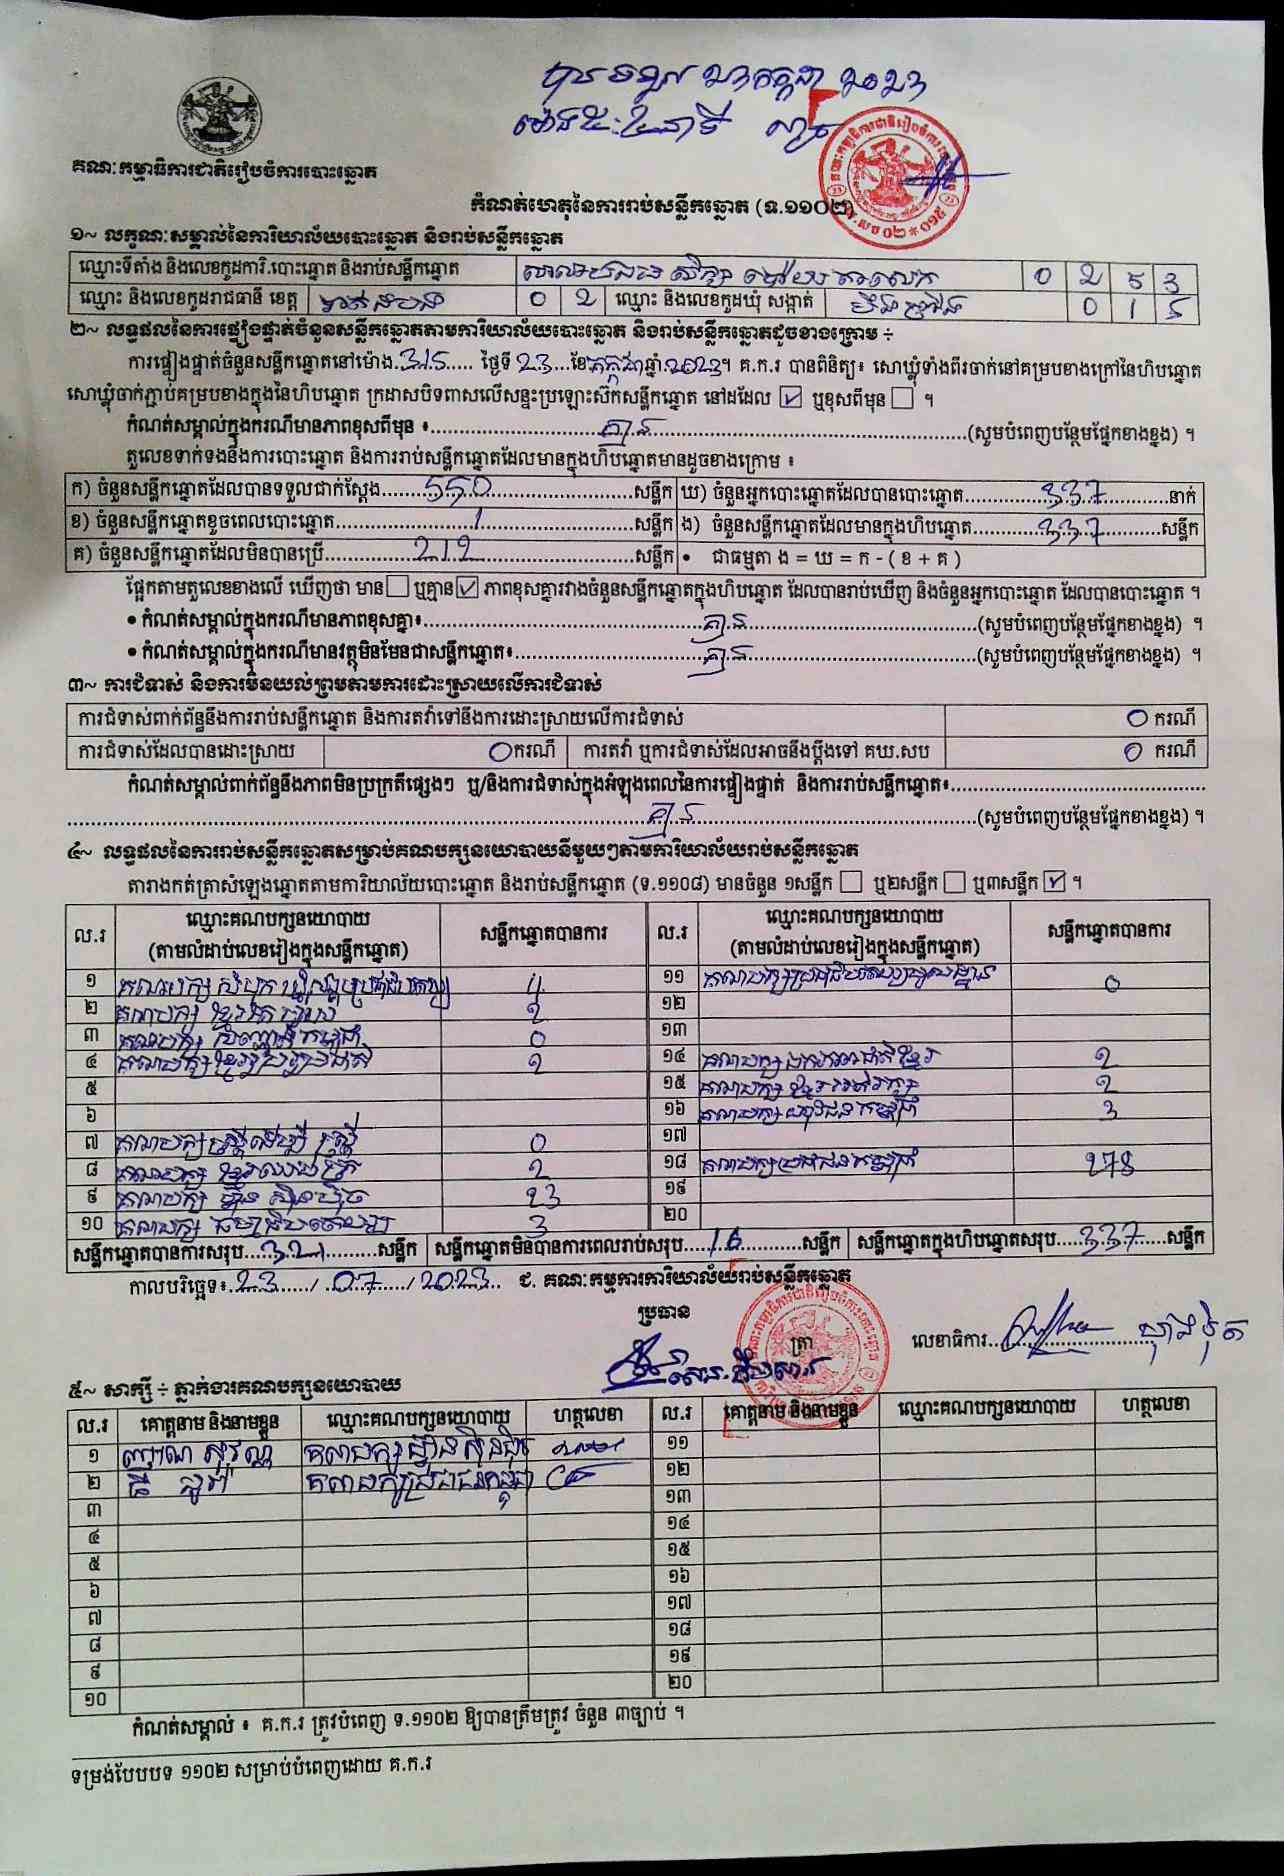 គណៈកម្មាធិការជាតិរៀបចំការបោះឆ្នោត
កំណត់ហេតុនៃការរាប់សន្លឹកឆ្នោត (ទ.១១០២)
១~ លក្ខណៈសម្គាល់នៃការិយាល័យបោះឆ្នោត និងរាប់សន្លឹកឆ្នោត
ឈ្មោះទីតាំង និងលេខកូដការិ.បោះឆ្នោត និងរាប់សន្លឹកឆ្នោត 0 2 5 3
ឈ្មោះ និងលេខកូដរាជធានី ខេត្ត 0 2 ឈ្មោះ និងលេខកូដឃុំ សង្កាត់ 0 1 5
២~ លទ្ធផលនៃការផ្ទៀងផ្ទាត់ចំនួនសន្លឹកឆ្នោតតាមការិយាល័យបោះឆ្នោត និងរាប់សន្លឹកឆ្នោតដូចខាងក្រោម ÷
ការផ្ទៀងផ្ទាត់ចំនួនសន្លឹកឆ្នោតនៅម៉ោង 3:15 ថ្ងៃទី 23 ខែ កក្កដា ឆ្នាំ 2023។ គ.ក.រ បានពិនិត្យ៖ សោឃ្លុំទាំងពីរចាក់នៅគម្របខាងក្រៅនៃហិបឆ្នោត
សោឃ្លុំចាក់ភ្ជាប់គម្របខាងក្នុងនៃហិបឆ្នោត ក្រដាសបិទពាសលើសន្ទះប្រឡោះស៊កសន្លឹកឆ្នោត នៅដដែល ☑ ឬខុសពីមុន ☐ ។
កំណត់សម្គាល់ក្នុងករណីមានភាពខុសពីមុន ៖ គ្មាន (សូមបំពេញបន្ថែមផ្នែកខាងខ្នង) ។
តួលេខទាក់ទងនឹងការបោះឆ្នោត និងការរាប់សន្លឹកឆ្នោតដែលមានក្នុងហិបឆ្នោតមានដូចខាងក្រោម ៖
ក) ចំនួនសន្លឹកឆ្នោតដែលបានទទួលជាក់ស្តែង 550 សន្លឹក ឃ) ចំនួនអ្នកបោះឆ្នោតដែលបានបោះឆ្នោត 337 នាក់
ខ) ចំនួនសន្លឹកឆ្នោតខូចពេលបោះឆ្នោត 1 សន្លឹក ង) ចំនួនសន្លឹកឆ្នោតដែលមានក្នុងហិបឆ្នោត 337 សន្លឹក
គ) ចំនួនសន្លឹកឆ្នោតដែលមិនបានប្រើ 212 សន្លឹក • ជាធម្មតា ង = ឃ = ក - ( ខ + គ )
ផ្អែកតាមតួលេខខាងលើ ឃើញថា មាន ☐ ឬគ្មាន ☑ ភាពខុសគ្នារវាងចំនួនសន្លឹកឆ្នោតក្នុងហិបឆ្នោត ដែលបានរាប់ឃើញ និងចំនួនអ្នកបោះឆ្នោត ដែលបានបោះឆ្នោត ។
• កំណត់សម្គាល់ក្នុងករណីមានភាពខុសគ្នា៖ គ្មាន (សូមបំពេញបន្ថែមផ្នែកខាងខ្នង) ។
• កំណត់សម្គាល់ក្នុងករណីមានវត្ថុមិនមែនជាសន្លឹកឆ្នោត៖ គ្មាន (សូមបំពេញបន្ថែមផ្នែកខាងខ្នង) ។
៣~ ការជំទាស់ និងការមិនយល់ព្រមតាមការដោះស្រាយលើការជំទាស់
ការជំទាស់ពាក់ព័ន្ធនឹងការរាប់សន្លឹកឆ្នោត និងការតវ៉ាទៅនឹងការដោះស្រាយលើការជំទាស់ 0 ករណី
ការជំទាស់ដែលបានដោះស្រាយ 0 ករណី ការតវ៉ា ឬការជំទាស់ដែលអាចនឹងប្តឹងទៅ គឃ.សប 0 ករណី
កំណត់សម្គាល់ពាក់ព័ន្ធនឹងភាពមិនប្រក្រតីផ្សេងៗ ឬ/និងការជំទាស់ក្នុងអំឡុងពេលនៃការផ្ទៀងផ្ទាត់ និងការរាប់សន្លឹកឆ្នោត៖
គ្មាន (សូមបំពេញបន្ថែមផ្នែកខាងខ្នង) ។
៤~ លទ្ធផលនៃការរាប់សន្លឹកឆ្នោតសម្រាប់គណបក្សនយោបាយនីមួយៗតាមការិយាល័យរាប់សន្លឹកឆ្នោត
តារាងកត់ត្រាសំឡេងឆ្នោតតាមការិយាល័យបោះឆ្នោត និងរាប់សន្លឹកឆ្នោត (ទ.១១០៨) មានចំនួន ១សន្លឹក ☐ ឬ២សន្លឹក ☐ ឬ៣សន្លឹក ☑ ។
ល.រ ឈ្មោះគណបក្សនយោបាយ (តាមលំដាប់លេខរៀងក្នុងសន្លឹកឆ្នោត) សន្លឹកឆ្នោតបានការ ល.រ ឈ្មោះគណបក្សនយោបាយ (តាមលំដាប់លេខរៀងក្នុងសន្លឹកឆ្នោត) សន្លឹកឆ្នោតបានការ
១ គណបក្ស 4 ១១ គណបក្ស 0
២ គណបក្ស ខ្មែរ 2 ១២
៣ គណបក្ស 0 ១៣
៤ គណបក្ស ខ្មែររួបរួមជាតិ 2 ១៤ គណបក្ស 2
៥ ១៥ គណបក្ស ខ្មែរ 2
៦ ១៦ គណបក្ស យុវជនកម្ពុជា 3
៧ គណបក្ស ស្ត្រីដើម្បីស្ត្រី 0 ១៧
៨ គណបក្ស 2 ១៨ គណបក្សប្រជាជនកម្ពុជា 278
៩ គណបក្ស ហ៊្វុនស៊ិនប៉ិច 23 ១៩
១០ គណបក្ស ធម្មាធិបតេយ្យ 3 ២០
សន្លឹកឆ្នោតបានការសរុប 321 សន្លឹក សន្លឹកឆ្នោតមិនបានការពេលរាប់សរុប 16 សន្លឹក សន្លឹកឆ្នោតក្នុងហិបឆ្នោតសរុប 337 សន្លឹក
កាលបរិច្ឆេទ៖ 23 / 07 / 2023 ជ. គណៈកម្មការការិយាល័យរាប់សន្លឹកឆ្នោត
ប្រធាន
ត្រា លេខាធិការ
៥~ សាក្សី ÷ ភ្នាក់ងារគណបក្សនយោបាយ
ល.រ គោត្តនាម និងនាមខ្លួន ឈ្មោះគណបក្សនយោបាយ ហត្ថលេខា ល.រ គោត្តនាម និងនាមខ្លួន ឈ្មោះគណបក្សនយោបាយ ហត្ថលេខា
១ គណបក្សហ៊្វុនស៊ិនប៉ិច ១១
២ គណបក្សប្រជាជនកម្ពុជា ១២
៣ ១៣
៤ ១៤
៥ ១៥
៦ ១៦
៧ ១៧
៨ ១៨
៩ ១៩
១០ ២០
កំណត់សម្គាល់ ៖ គ.ក.រ ត្រូវបំពេញ ទ.១១០២ ឱ្យបានត្រឹមត្រូវ ចំនួន ៣ច្បាប់ ។
ទម្រង់បែបបទ ១១០២ សម្រាប់បំពេញដោយ គ.ក.រ